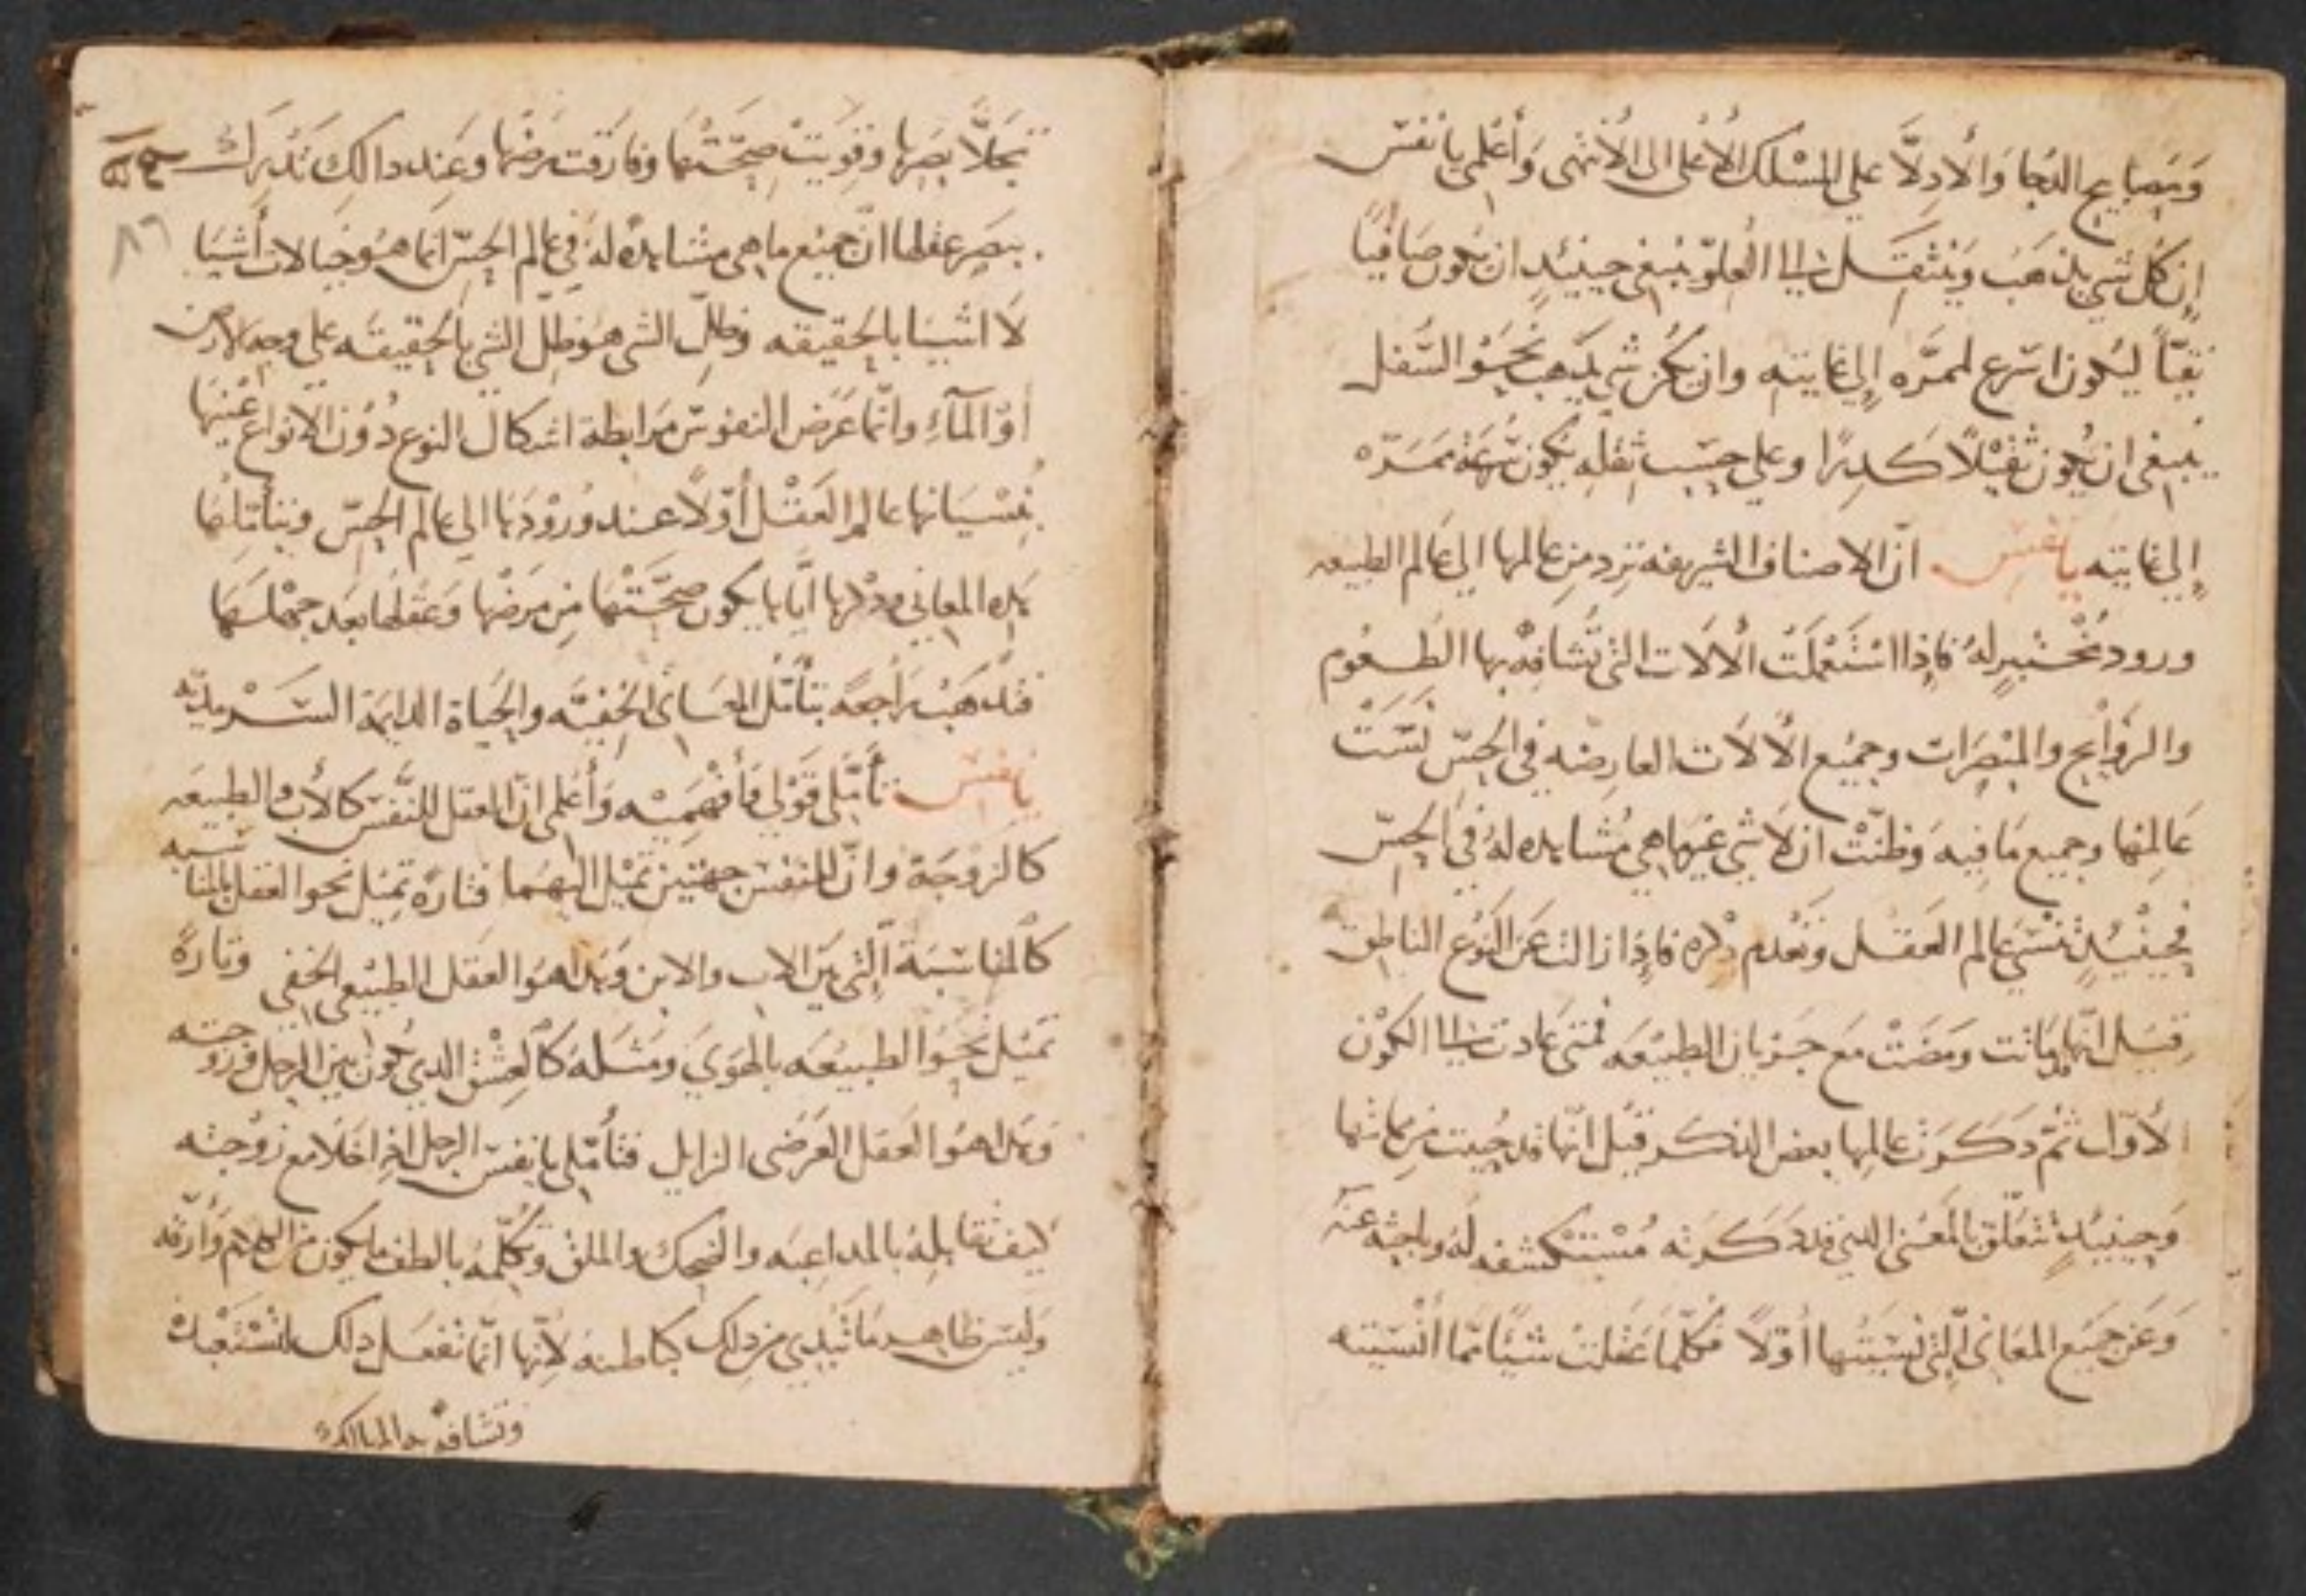 وَمَصَابيح الدُجا وَالأدِلَّا علي المسْلك الأعْلى الى الأنهى وَأعْلمي يا نفس
إن كُل شي يذهَب وَينتقِل الى العُلوّ ينبغى حينئِدٍ ان يكون صَافيًا
نقيّاً ليَكون اسَرع لممَّره إلي غايته وان يكن شي يذهب نحوَ السُفل
ينبغى ان يكون ثقيلًا كَدِرًا وعلي حسَب ثقله يكون سُرعَة ممَرّه
إلي غايته يا نفس انّ الاصناف الشريفه ترد من عالمها الي عَالم الطبيعه
ورود مُختبِرٍ لهُ فاذا استَعْملَتْ الألات التي تُشافِهُ بها الطعُوم
والروَايح والمُبْصَرَات وجميع الألات العارضه في الحِسّ نسَيَتْ
عَالمهَا وجميع مَا فيه وَظنّتْ ان لا شي غير ما هي مُشاهده لهُ في الحِسّ
فحينئِدٍ تنسَي عالم العَقل وتعْدم ذكره فاذا زالت عَن النَوْع الناطِق
قيَل انّها مَاتت وَمضَتْ مَع جَريان الطبيعَه فمتى عَادت الى الكوْن
الأوّل ثمّ دَكَرَت عَالمها بعض الذكر قيْل انّها قد حُييت من مماتها
وَحينئِدٍ تتعَلّق بالمعْنى الدي قد دَكرَته مُسْتكشفه لهُ وباحِثه عَنه
وَعَن جميَع المعَاني التي نسيَتها أوّلاً فكلّما عَقلت شيئًا ممّا أنْسيَته
تجَلّا بصَرها وَقويَتْ صِحّتها وفارَقت مرَضها وعَند دالِك تُدْرَك صح
ببصَر عقلها انّ جميْع ما هي مشاهده لهُ في عالم الحِسّ انما هو خيالات أشيَا
لا اشيَا بالحقيقه وَظلّ الشي هو ظلّ الشي بالحقيقه على وجه الارض
أوْ المآءِ وانّما عَرَض النفوسَ مرَابطة اشكال النوع دُون الانواع عَينها
بنسْيَانها عالم العَقل أوّلاً عند وُرودَها الي عالم الحِسّ وبتأمّلها
هَده المعاني ودكرها ايّاها يكون صحَّتها مِن مَرضها وَعَقلها بَعد جهْلهَا
فتذهَب رَاجعَه بتأمّل المعَاني الخفيّه والحيَاة الدايمَة السَرمديّه
يا نفس تأمّلي قوْلي فأفهَميْه وَأعْلمى انّ العقل للنَّفسَ كالأب والطبيعَه
كالزوْجَة وانّ للنفس جهتين تميْل اليهما فتارة تميْل نحو العَقل بالمناسَبه
كالمناسَبَة التي بين الاب والابن وَهدا هوَ العقل الطبيْعي الخفي وتارَةً
تميْل نحوَ الطبيعَه بالهَوي وَمَثله كالعِشق الدي يكون بين الرجل وزوجته
وَهدا هوَ العَقل العَرَضى الزايل فتأملي يا نفسَ الرجل اذا خلا مع زوْجته
كيف تقابلهُ بالمداعبَه والضحِك والملق وَتكلّمهُ بالطف ما يكون من الكلام وَأرقّه
وَليسَ ظاهر مَا تُبْدي من دلك كباطنه لأنّها انّما تفعَل دلك لتسْتعْبدهْ
وتشافه به المهالك